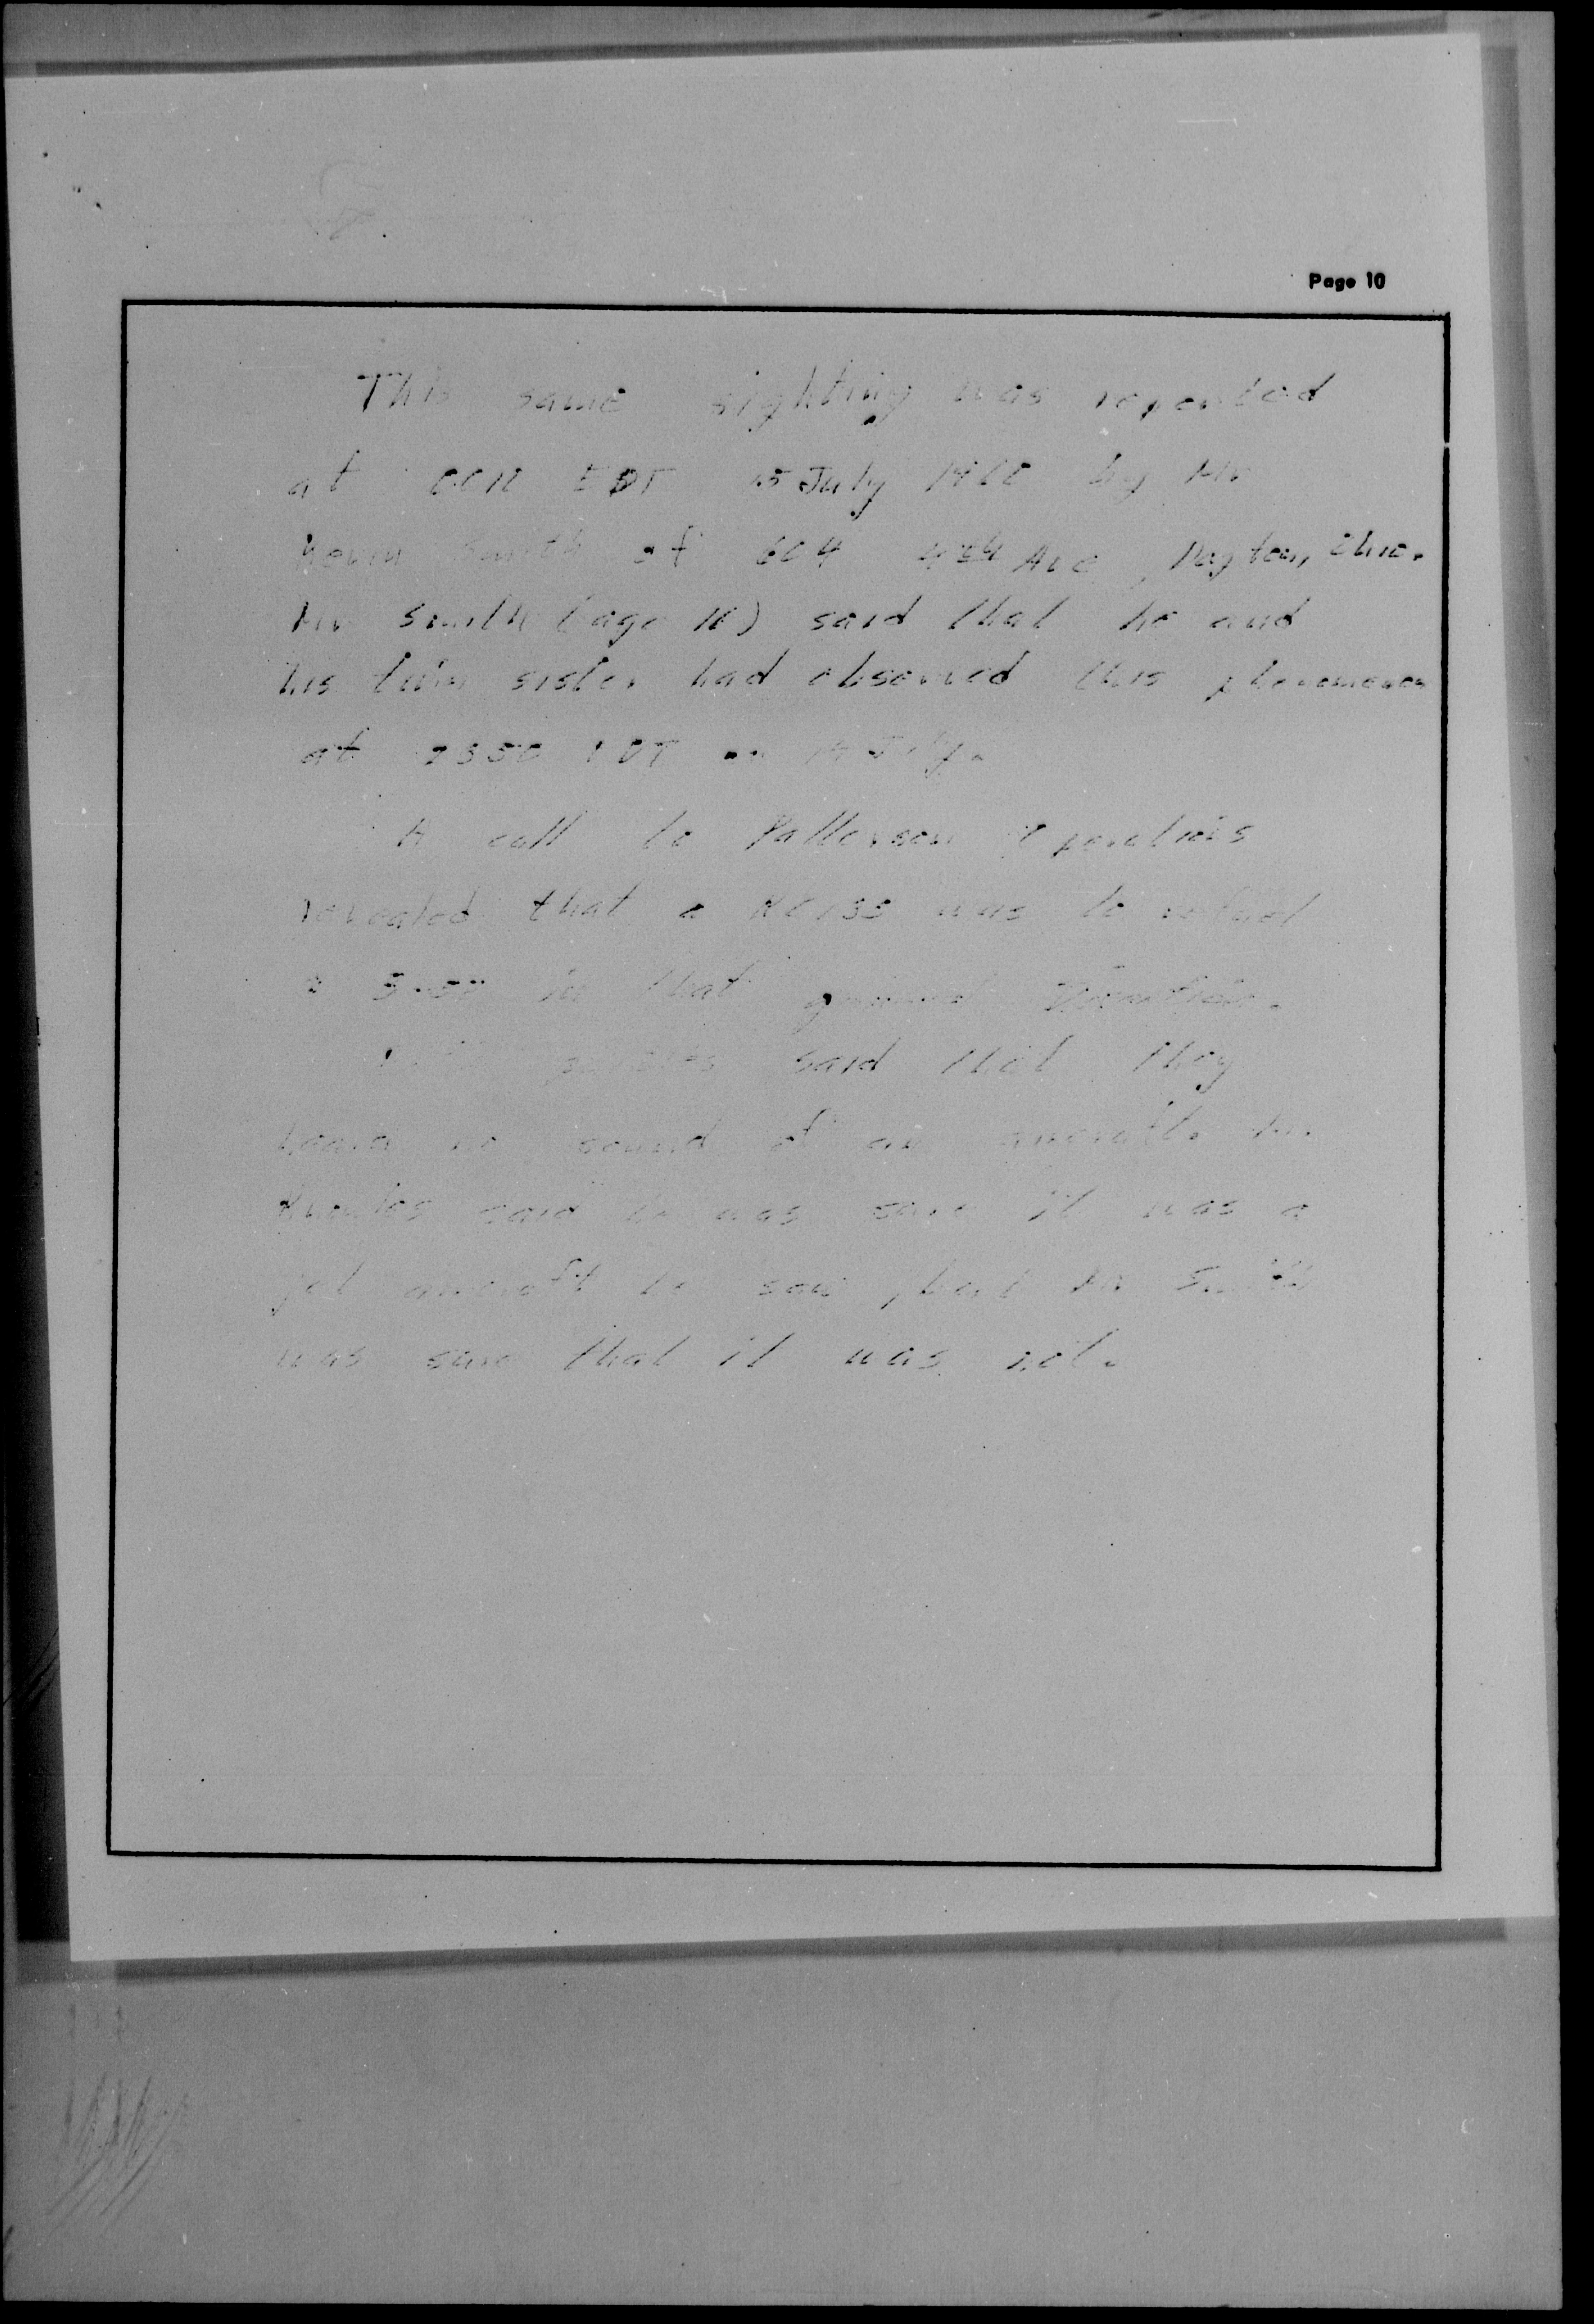 Page 10
This same sighting was reported
at EDT 15 July by Mr
Smith of 604 4th Ave, Dayton, Ohio.
Mr Smith (age ) said that he and
his twin sister had observed this phenomenon
at 2350 EDT on 14 July.
A call to Patterson Operations
revealed that a KC135 was to refuel
a B-52 in that general direction.
said that they
heard no sound of an aircraft. Mr.
said he was sure it was a
jet aircraft he saw, but Mr Smith
was sure that it was not.